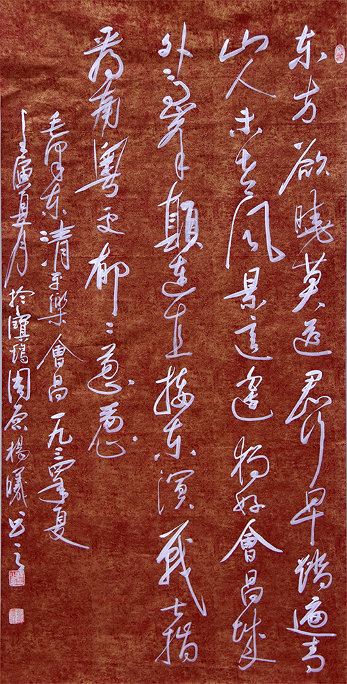 东方欲曉莫道君行早踏遍青
山人未老风景这边独好會昌城
外高峰顛连直接东溟战士指
看南粵更郁々葱葱
毛泽东清平樂會昌一九三四年夏
月於寶鸡周原楊曦书之